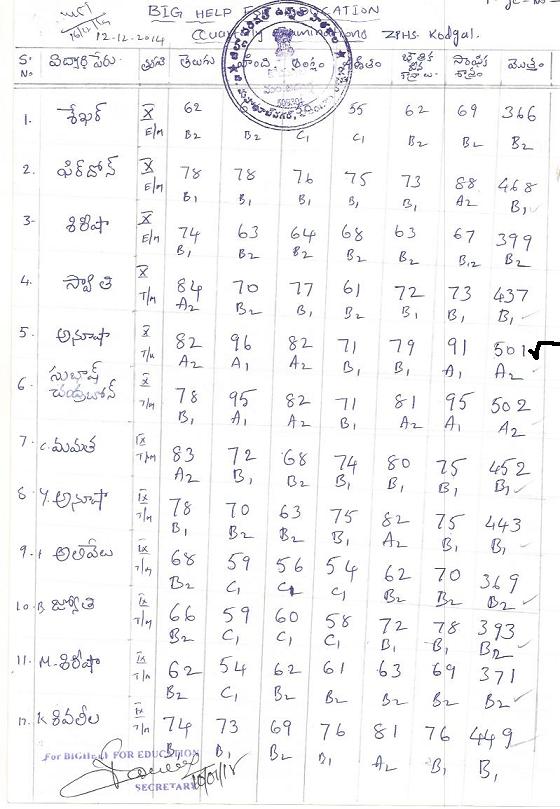 BIG HELP FOR EDUCATION
12-12-2014 Quarterly Examinations ZPHS. Kodgal.
S. No విద్యార్థి పేరు తెలుగు మొత్తం
1. శేఖర్ X E/m 62 55 62 69 366
B2 B2 C1 C1 B2 B2 B2
2. X E/m 78 78 76 75 73 88 468
B1 B1 B1 B1 B1 A2 B1
3- శిరీషా X E/m 74 63 64 68 63 67 399
B1 B2 B2 B2 B2 B2 B2
4. స్వాతి X T/m 84 70 77 61 72 73 437
A2 B2 B1 B2 B1 B1 B1
5. అనూషా X T/m 82 96 82 71 79 91 501
A2 A1 A2 B1 B1 A1 A2
6. సుభాష్ చంద్రబోస్ X T/m 78 95 82 71 81 95 502
B1 A1 A2 B1 A2 A1 A2
7. C. మమత IX T/m 83 72 68 74 80 75 452
A2 B1 B2 B1 B1 B1 B1
8. Y. అనూషా IX T/m 78 70 63 75 82 75 443
B1 B2 B2 B1 A2 B1 B1
9. అలివేలు IX T/m 68 59 56 54 62 70 369
B2 C1 C1 C1 B2 B2 B2
10. B జ్యోతి IX T/m 66 59 60 58 72 78 393
B2 C1 C1 C1 B1 B1 B2
11. M. శిరీషా IX T/m 62 54 62 61 63 69 371
B2 C1 B2 B2 B2 B2 B2
12. K శివలీల IX T/m 74 73 69 76 81 76 449
B1 B1 B2 B1 A2 B1 B1
For BIGHELP FOR EDUCATION
SECRETARY